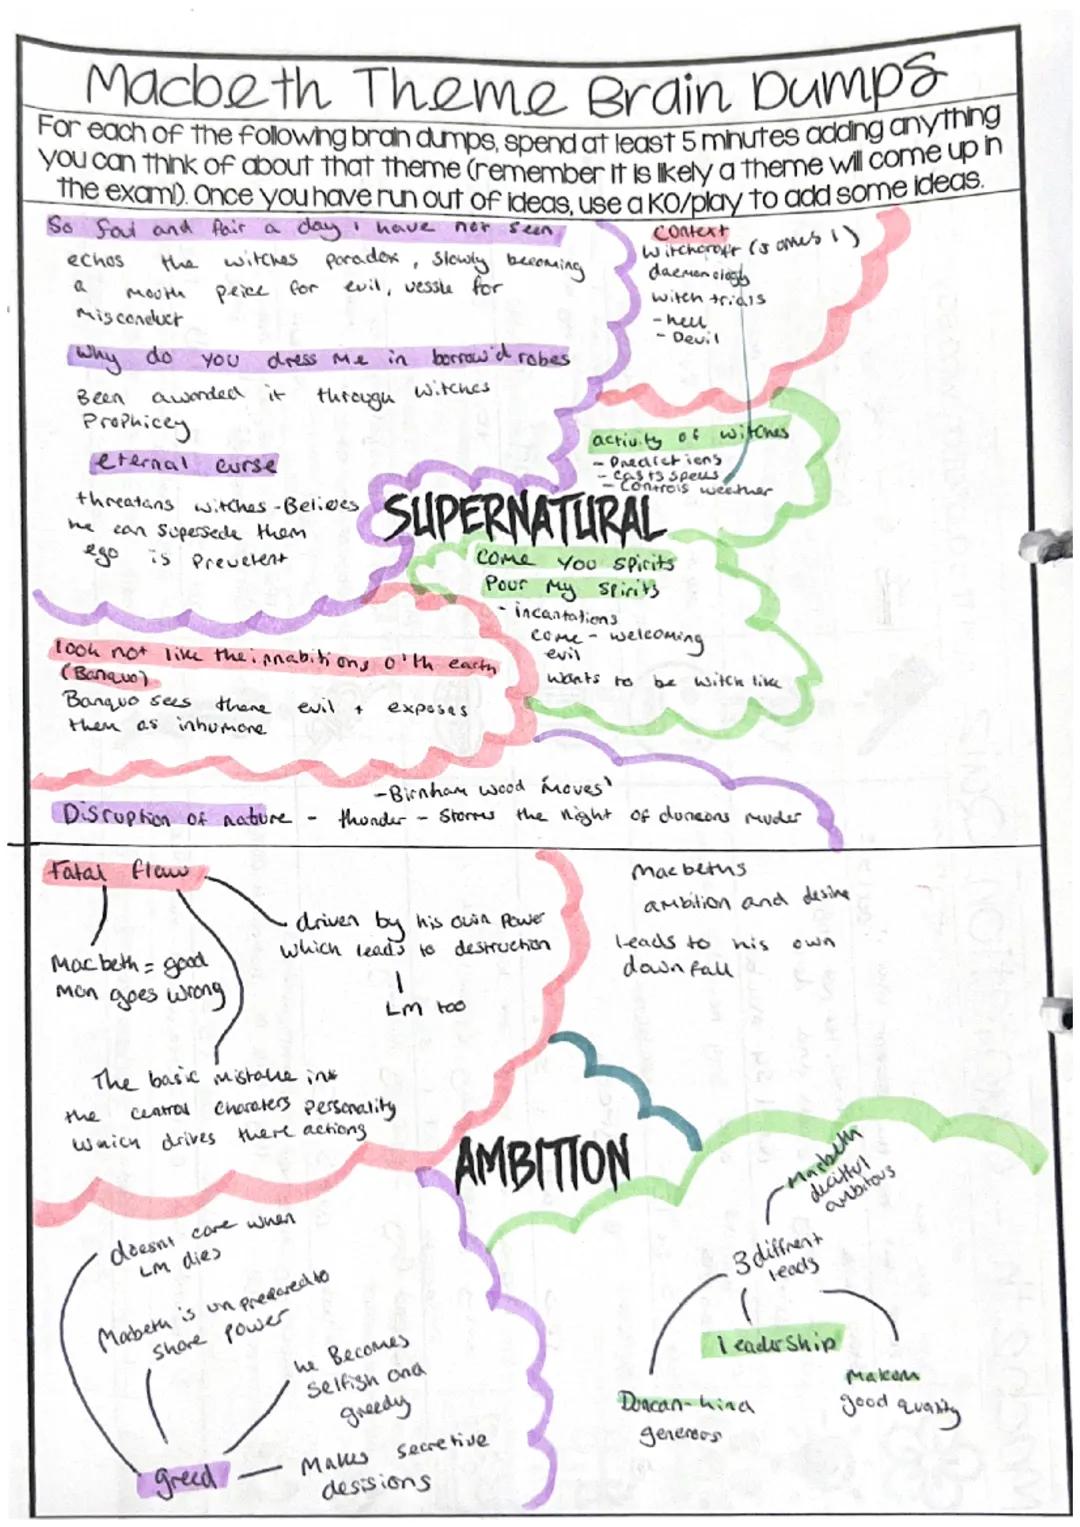 Macbeth Theme Brain Dumps
For each of the following brain dumps, spend at least 5 minutes adding anything
you can think of about that theme (remember it is likely a theme will come up in
the exam!). Once you have run out of ideas, use a KO/play to add some ideas.
So foul and fair a day i have not seen
echos the witches paradox, slowly becoming
a mouth peice for evil, vessle for
misconduct
Why do you dress me in borrow'd robes
Been awarded it through witches
Prophicey
eternal curse
threatans witches - Belives
he can supersede them
ego is prevelent
Context
Witchcraft (James 1)
daemonology
witch trials
- hell
- Devil
activity of witches
- Predictions
- casts spells
- controls weather
SUPERNATURAL
Come you spirits
Pour my spirits
- incantations
come - welcoming
evil
wants to be witch like
look not like the innabitions o'th earth
(Banquo)
Banquo sees there evil + exposes
them as inhumane
- Birnham wood 'moves'
Disruption of nature - thunder - Storms the night of duncans muder
fatal flaw
Macbeth = good
man goes wrong
driven by his own power
which leads to destruction
LM too
The basic mistake in
the central charaters personality
which drives there actions
Macbeths
ambition and desire
leads to his own
downfall
AMBITION
doesnt care when
LM dies
Macbeth is unprepared to
share power
he Becomes
selfish and
greedy
greed
Makes secretive
desisions
Macbeth
decitful
ambitous
3 diffrent
leads
leadership
Duncan - kind
generous
Malcom
good quality